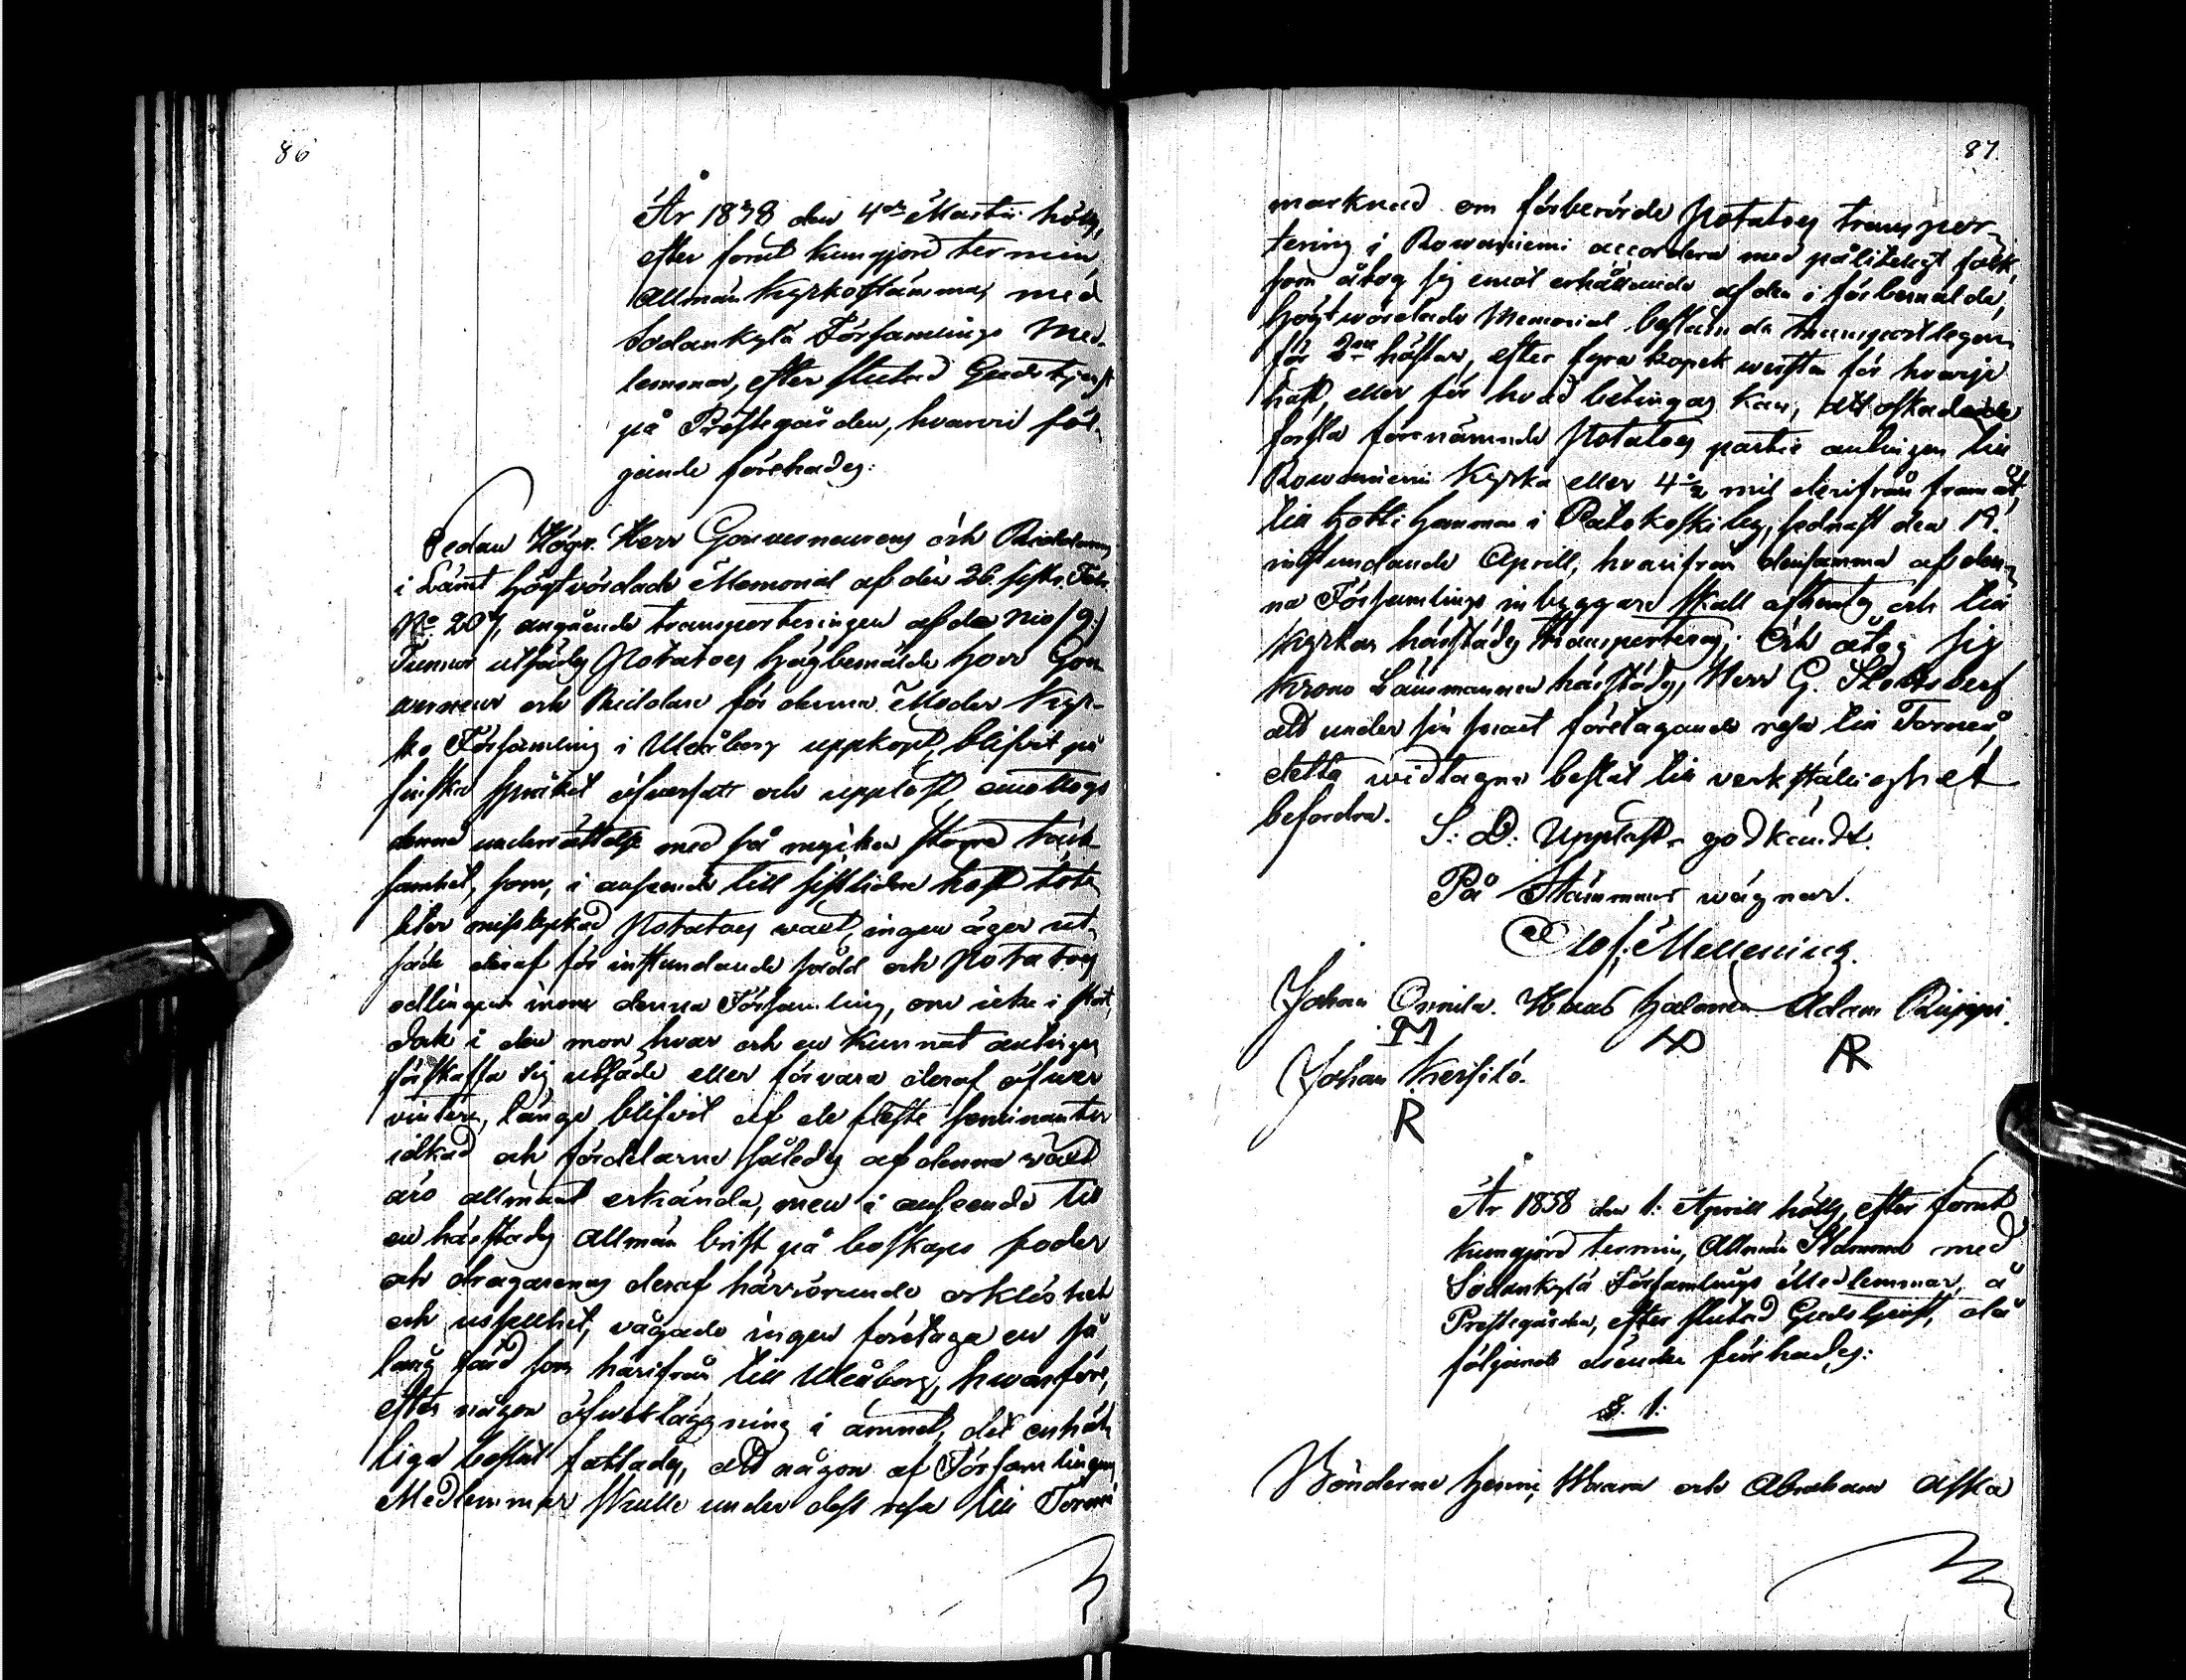 86
År 1838 den 4de Martii hölts,
efter förut kungjord termin,
Allmän Kyrkostämma, med
Sodankylä Församlings Med-
lemmar, efter slutad Gudstjenst
på Prestegården, hvarvid föl-
jande förehades:
Sedan Högv. Herr Gouverneurens och Riddarens
i Länet högtvördade Memorial af den 26 sistl. Febr.
No 207, angående transporteringen af de nio /9:/
Tunnor utsädes Potatoes högbemälde Herr Gou
verneur och Riddare för denna Moder Kyr-
ko Församling i Uleåborg uppköpt, blifvit på
finska språket öfversatt och uppläst, emottogs
denna underrättelse med så mycken större tack
samhet, som, i anseende till sistlidne höst tota
liter misslyckad Potatoes växt, ingen äger ut-
säde deraf för instundande sådd och Potatoes
odlingen inom denna Församling, om icke i stort,
dock i den mon hvar och en kunnat antingen
förskaffa sig utsäde eller förvara deraf öfver
vintern, länge blifvit af de fleste hemmanter
idkad och fördelarne således af denna växt
äro allmänt erkända, men i anseende till
en härstädes allmän brist på boskaps foder
och dragarenas deraf härrörande orklöshet
och uselhet, vågade ingen företaga en så
lång färd som härifrån till Uleåborg, hvarföre,
efter någon öfverläggning i ämnet, det enhäl-
liga beslut fattades, att någon af Församlingens
Medlemmar skulle under dess resa till Torneå
87.
marknad om förberörde Potatoes transpor-
tering i Rowaniemi accordera med pålitligt folk,
som åtog sig emot erhållande af den i förbemälde,
högtvördade Memorial bestämda transportlegan
för 2ne hästar, efter fyra kopek versten för hvarje
häst, eller för hvad betingas kan, att oskadade
forsla förenämnde Potatoes partie antingen till
Rowaniemi Kyrka eller 4 1/2 mil derifrån framåt,
till Hotti hemman i Patokoski by, sednast den 19.
instundande Aprill, hvarifrån densamma af den-
na Församlings inbyggare skall afhemtas och till
Kyrkan härstädes transporteras; Och åtog sig
Krono Länsmannen härstädes, Herr G. Slottsberg
att under sin snart företagande resa till Torneå,
detta vidtagna beslut till verkställighet
befordra.
S: D: Uppläst, godkändt.
På Stämmans vägnar.
Olof Mellenius.
Johan Onnela. Klaas Halonen Adam Riippi.
AR
Johan Kersilö.
R
År 1838 den 1: Aprill hölts, efter förut
kungjord termin, Allmän Stämma med
Sodankylä Församlings Medlemmar, å
Prestegården, efter slutad Gudstjenst, då
följande ärenden förehades:
§. 1:
Bönderne Henric Waara och Abraham Aska